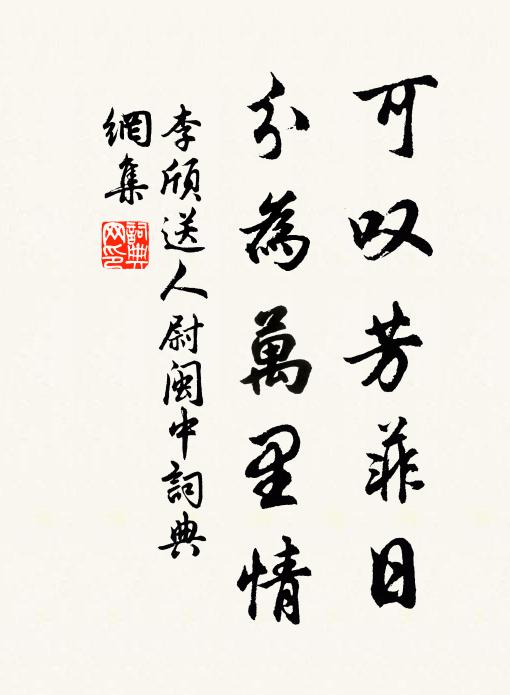 可叹芳菲日
分為萬里情
李頎送人尉閩中詞典
網集
詞典網印